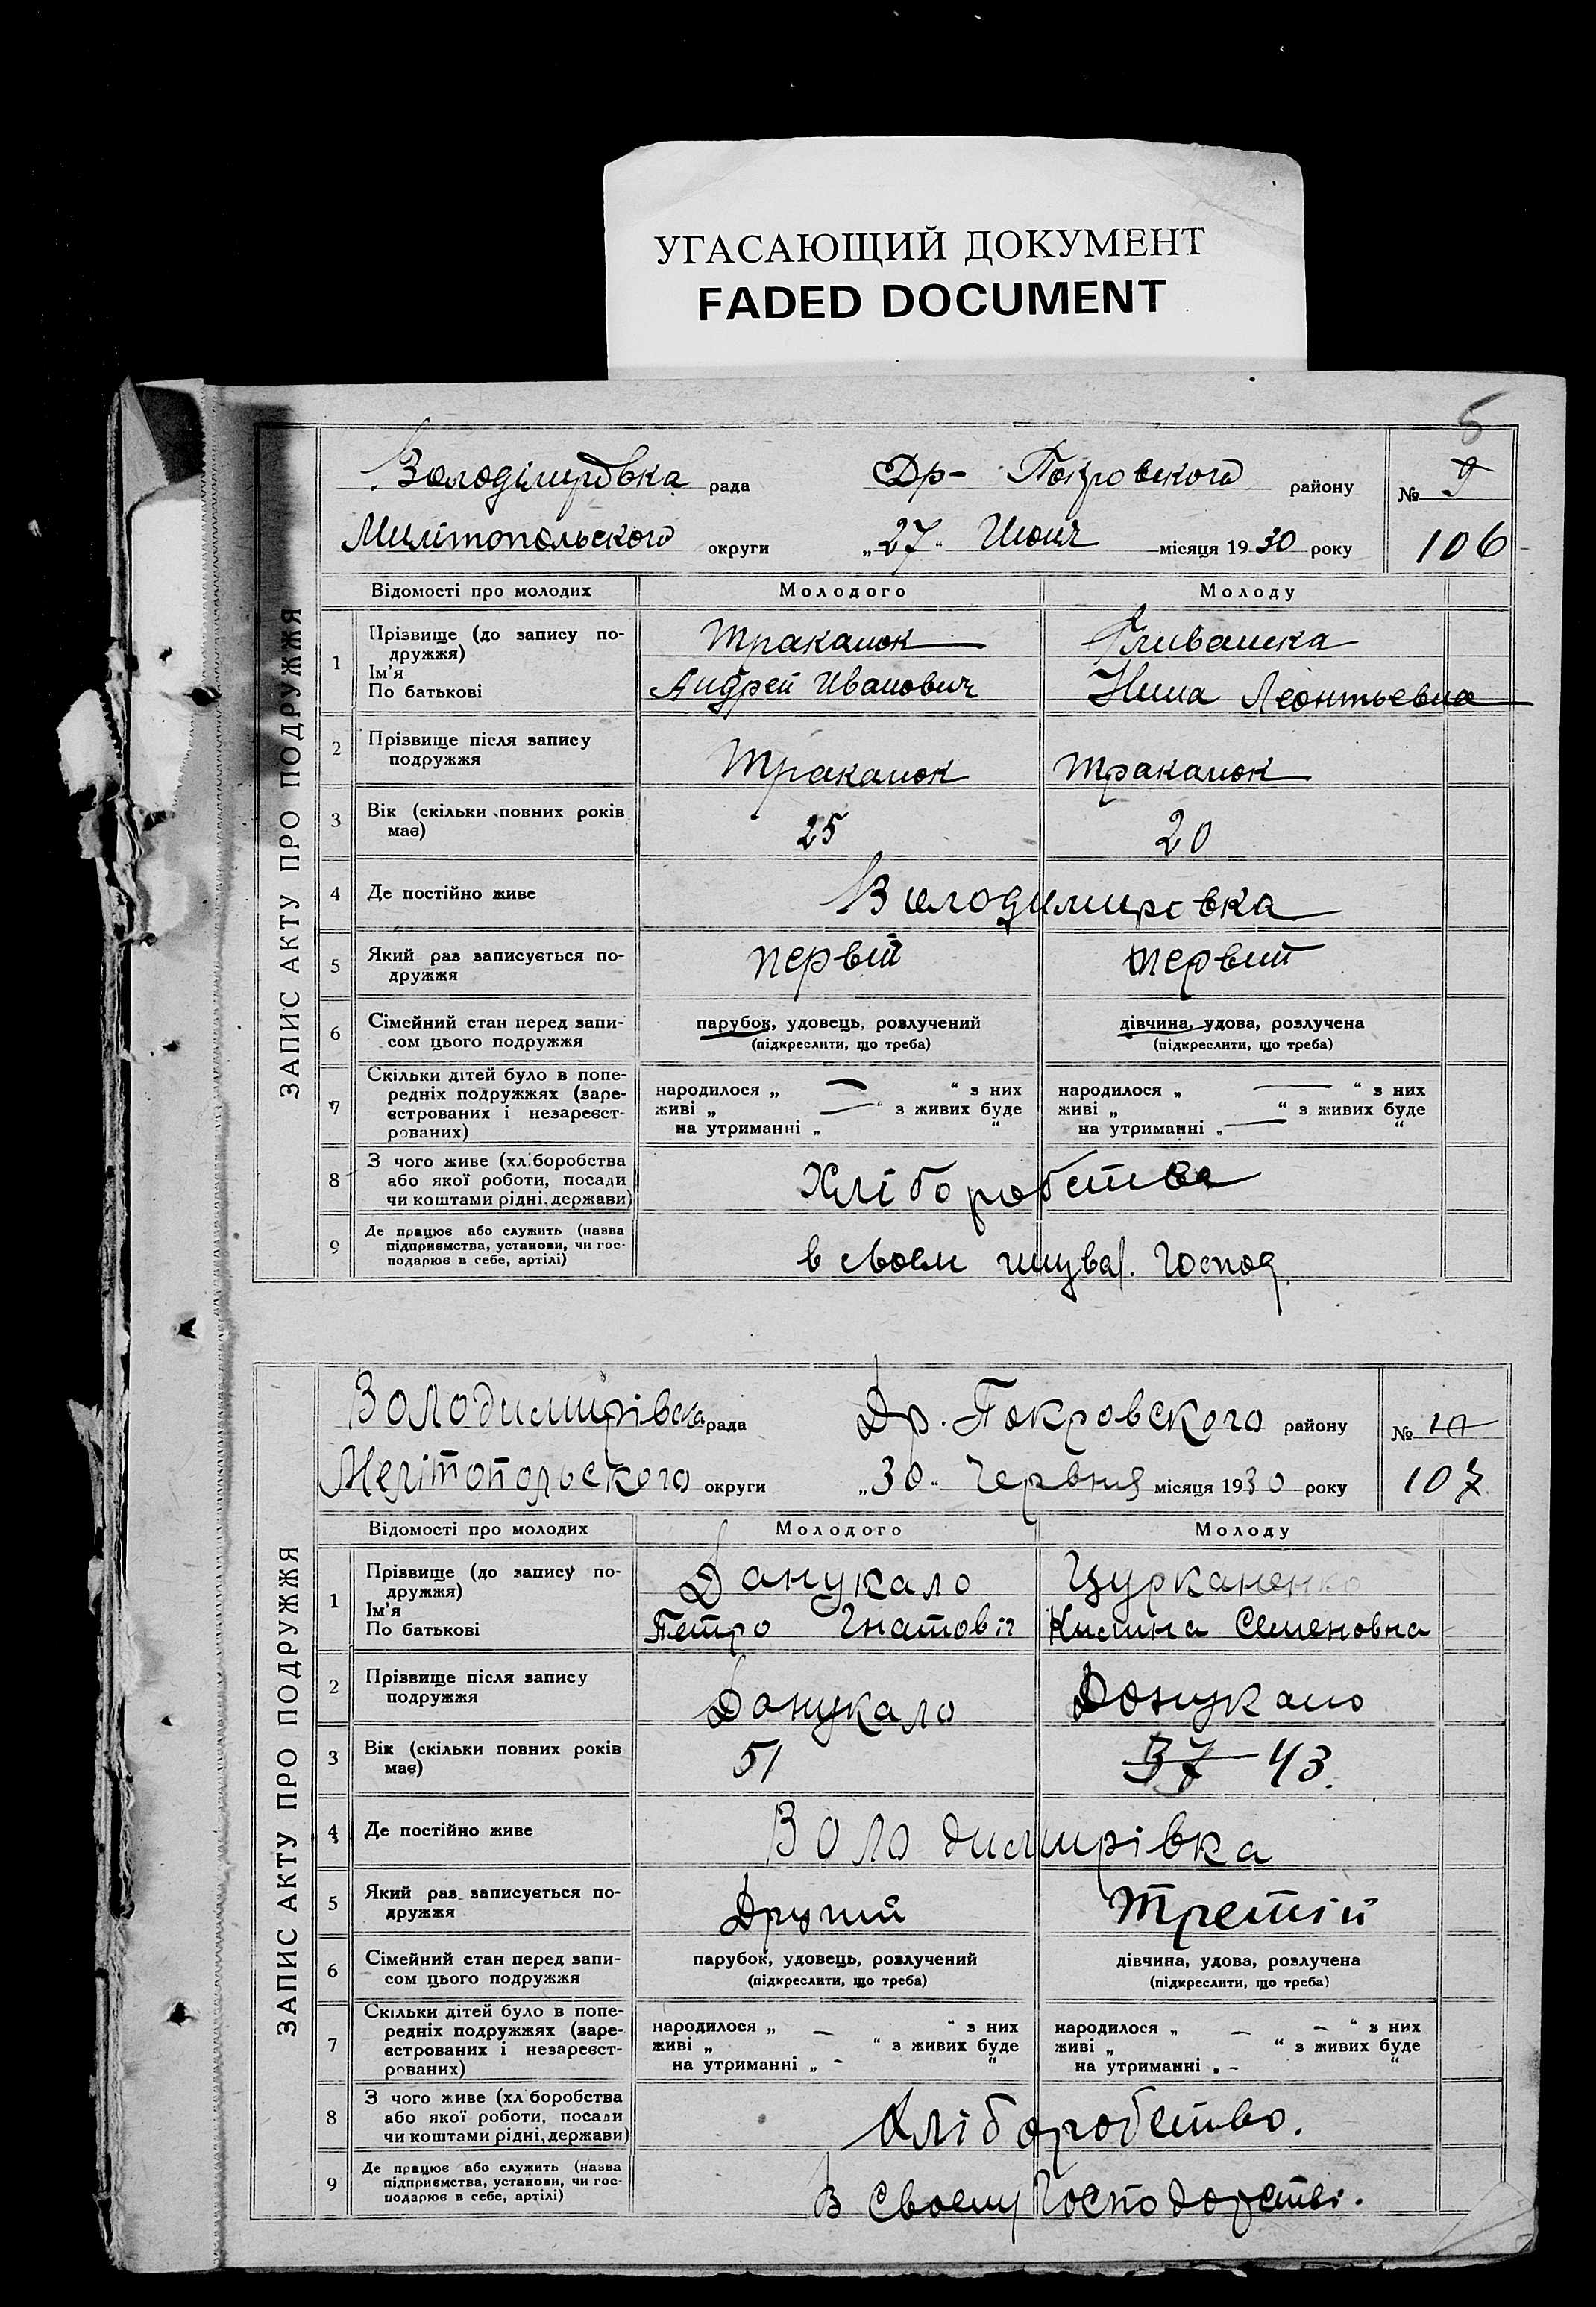 УГАСАЮЩИЙ ДОКУМЕНТ
FADED DOCUMENT
5
Володімировка рада Др- Покровского району № 9
Милітопольского округи „27“ Июня місяця 1930 року 106
ЗАПИС АКТУ ПРО ПОДРУЖЖЯ
Відомості про молодих Молодого Молоду
1 Прізвище (до запису по-
дружжя)
Ім'я
По батькові
Траканюк
Андрей Иванович
Нина Леонтьевна
2 Прізвище після запису
подружжя
Траканюк Траканюк
3 Вік (скільки повних років
має)
25 20
4 Де постійно живе Володимировка
5 Який раз записується по-
дружжя
первій первий
6 Сімейний стан перед запи-
сом цього подружжя
парубок, удовець, розлучений
(підкреслити, що треба)
дівчина, удова, розлучена
(підкреслити, що треба)
7 Скільки дітей було в попе-
редніх подружжях (заре-
єстрованих і незареєст-
рованих)
народилося „ — “ з них
живі „ — “ з живих буде
на утриманні „ “
народилося „ — “ з них
живі „ “ з живих буде
на утриманні „ — “
8 З чого живе (хліборобства
або якої роботи, посади
чи коштами рідні, держави)
Хліборобства
9 Де працює або служить (назва
підприємства, установи, чи гос-
подарює в себе, артілі)
в своем Господ.
Володимирівска рада Др. Покровского району № 10
Мелітопольского округи „30“ Червня місяця 1930 року 107
ЗАПИС АКТУ ПРО ПОДРУЖЖЯ
Відомості про молодих Молодого Молоду
1 Прізвище (до запису по-
дружжя)
Ім'я
По батькові
Данукало Цурканенко
Петро Гнатовіч Килина Семеновна
2 Прізвище після запису
подружжя
Данукало Донукало
3 Вік (скільки повних років
має)
51 37 43.
4 Де постійно живе Володимирівка
5 Який раз записується по-
дружжя
Другий Третій
6 Сімейний стан перед запи-
сом цього подружжя
парубок, удовець, розлучений
(підкреслити, що треба)
дівчина, удова, розлучена
(підкреслити, що треба)
7 Скільки дітей було в попе-
редніх подружжях (заре-
єстрованих і незареєст-
рованих)
народилося „ — “ з них
живі „ “ з живих буде
на утриманні „ - “
народилося „ — — “ з них
живі „ “ з живих буде
на утриманні „ - “
8 З чого живе (хліборобства
або якої роботи, посади
чи коштами рідні, держави)
Хліборобство.
9 Де працює або служить (назва
підприємства, установи, чи гос-
подарює в себе, артілі)
В своему Господарстві.